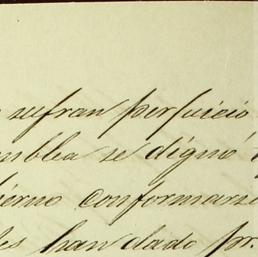 sufran perjuicio
mblea se dignó
ierno conformarse
les han dado pr.